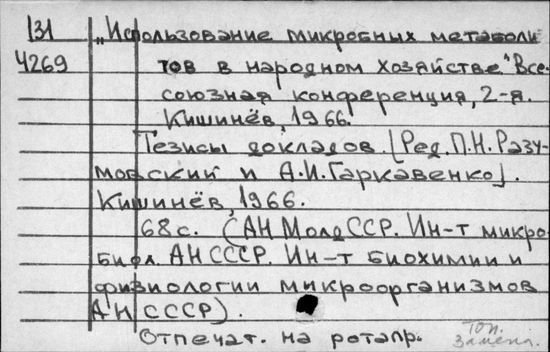 131
4269
„Использование микробных метаболи
тов в народном хозяйстве" Все-
союзная конференция, 2-я.
Кишинёв, 1966.
Тезисы докладов. [Ред. П.Н. Разу-
мовский и А.И. Гаркавенко].
Кишинёв, 1966.
68 с. (АН Молд ССР. Ин-т микро-
биол. АН СССР. Ин-т биохимии и
физиологии микроорганизмов
АН СССР).
Отпечат. на ротапр.